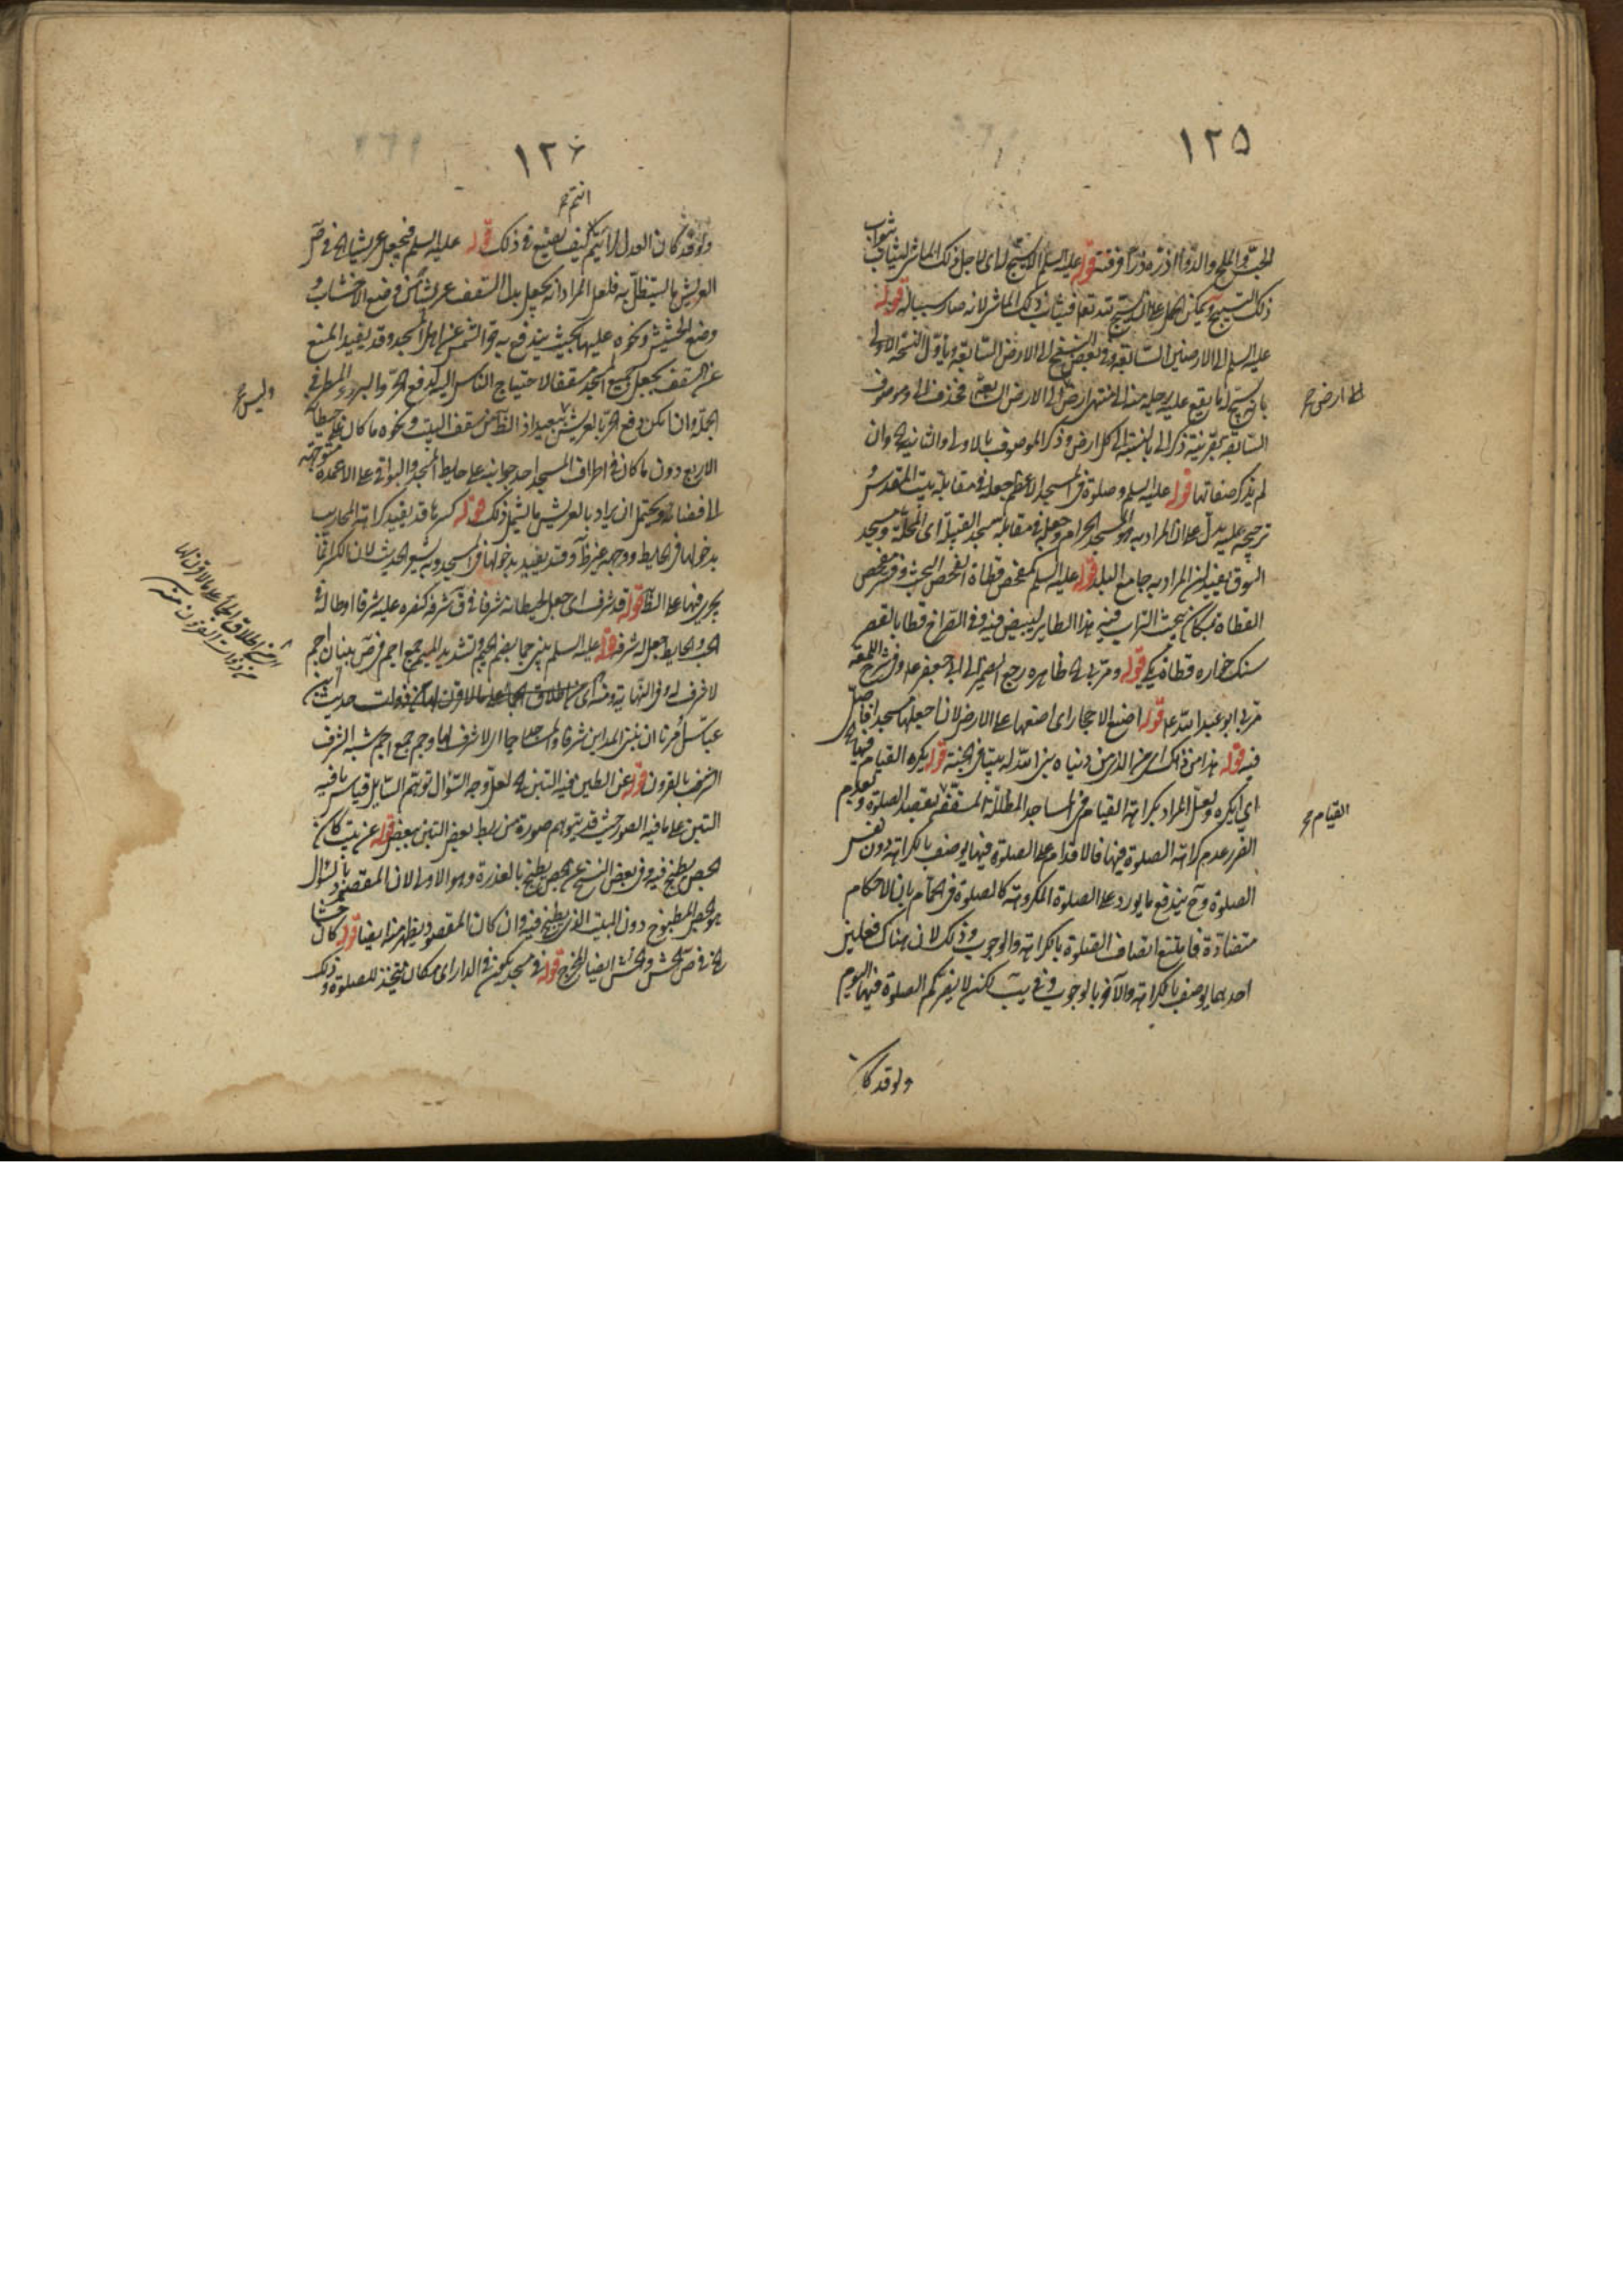 ١٢٥
الحب والملح والدواء اذره ذرا فرقته قوله عليه السلم الا يسبح له اى لاجل ذلك الماشى ليثاب ثواب
ذلك التسبيح ويمكن الحمل على ان يسبح لله تعا فيثاب ذلك الماشى لانه صار سببا له قوله
عليه السلم الى الارضين السابعة وفى بعض النسخ الى الارض السابعة ويأول النسخة الاولى
بان يسبح له ما يقع عليه رجله منه الى منتهى ارض الى الارض السابعة فحذف الى وموصوف
الى ارض صح
السابعة بقرينة ذكر الى بالنسبة الى كل ارض وذكر الموصوف بالاولى والثانية وان
لم يذكر صفاتها قوله عليه السلم وصلوة فى المسجد الاعظم جعله فى مقابلة بيت المقدس
ترجيحه عليه يدل على ان المراد به هو المسجد الحرام وجعله فى مقابلة مسجد القبيلة اى المحلة ومسجد
السوق يفيد ان المراد به جامع البلد قوله عليه السلم كمفحص قطاة الفحص البحث وفى مفحص
القطاة مكان يبحث التراب فيه هذا الطاير ليبيض فيه وفى الصراح قطا بالقصر
سنك خواره قطاة يكى قوله ومر بى الخ ظاهره رجع الضمير الى ابى جعفر ع وفى شرح اللمعة
مر بى ابو عبد الله ع قوله اضع الاحجار اى اضعها على الارض لان اجعلها مسجدا فاصلى
فيه قوله هذا من ذاك اى من الذى من بناه بنى الله له بيتا فى الجنة قوله يكره القيام فيها الخ
اى ايكره ولعل المراد بكراهة القيام فى المساجد المظللة المسقف بقصد الصلوة وتعليم
القيام صح
الضرر عدم كراهة الصلوة فيها فالاقدام على الصلوة فيها يوصف بالكراهة دون نفس
الصلوة وح يندفع ما يورد على الصلوة المكروهة كالصلوة فى الحمام بان الاحكام
متضادة فامتنع اتصاف الصلوة بالكراهة والوجوب وذلك لان هناك فعلين
احدهما يوصف بالكراهة والآخر بالوجوب وفى يب لكن لا يضركم الصلوة فيها اليوم
ولو قد كان
١٢٦
انتم صح
ولو قد كان العدل لرأيتم كيف يصنع فى ذلك قوله عليه السلم فيجعل عريشا الخ فى ص
العريش ما يستظل به فلعل المراد انه يجعل بدل السقف عريشا كن وضع الاخشاب و
وضع الحشيش ونحوه عليها بحيث يندفع به حر الشمس عن اهل المسجد وقد يفيد المنع
عن السقف بجعل جميع المسجد مسقفا لاحتياج الناس اليه لدفع الحر والبرد والمطر فى
وليس صح
الجملة وان امكن دفع الحر بالعريش ببعيد اذ الظاهر من سقف البيت ونحوه ما كان على حيطانه
الاربع دون ما كان فى اطراف المسجد احد جوانبه على حايط المسجد والبواقى على الاعمدة متوجهة
الى فضائه ويحتمل ان يراد بالعريش ما يشمل ذلك قوله كسرها قد يفيد كراهة المحاريب
بدخولها فى الحايط ووجهه غير ظاهر وقد يفيد بدخولها فى المسجد وبه يشعر الحديث لان الكسر انما
يجرى فيها على الظاهر قوله قد شرف اى جعل لحيطانه شرفا فى ق شرفه كنصره عليه شرفا او طاله فى
الحسب والحايط جعل له شرفة قوله عليه السلم يبنى جما بضم الجيم وتشديد الميم جمع اجم فى ص بنيان اجم
لا شرف له وفى النهاية ومنه حديث ابن
عباس امرنا ان نبنى المداين شرفا والمساجد جما اى لا شرف لها وجم جمع اجم شبه الشرف
الشرف بالقرون قوله عن الطين فيه التبن الخ لعل وجه السؤال توهم السايل قياس ما فيه
التبن على ما فيه الصور حيث قد يتوهم صورة من ربط بعض التبن ببعض قوله عن بيت كان
الجص يطبخ فيه وفى بعض النسخ عن الجص يطبخ بالعذرة وهو الاولى لان المقصود بالسؤال
هو الجص المطبوخ دون البيت الذى يطبخ فيه وان كان المقصود يظهر منه ايضا قوله كان حشا
الخ فى ص الحش والحش ايضا المخرج قوله فى مسجد يكون فى الدار اى مكان متخذ للصلوة وذلك